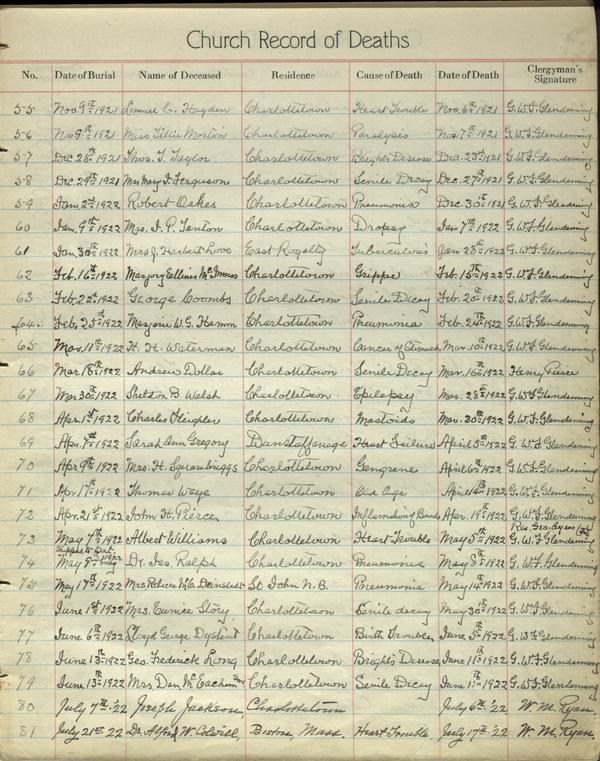 Church Record of Deaths
No. Date of Burial Name of Deceased Residence Cause of Death Date of Death Clergyman's Signature
55 Nov. 9th 1921 Lemuel C. Hayden Charlottetown Heart Trouble Nov. 6th 1921 G.W.F. Glendenning
56 Nov 9th 1921 Miss Tillie Morton Charlottetown Paralysis Nov. 7th 1921 G.W.F. Glendenning
57 Dec. 25th 1921 Thos. T. Taylor Charlottetown Brights Disease Dec. 23rd 1921 G.W.F. Glendenning
58 Dec. 29th 1921 Mrs Mary J. Ferguson Charlottetown Senile Decay Dec. 27th 1921 G.W.F. Glendenning
59 Jan. 2nd 1922 Robert Oakes Charlottetown Pneumonia Dec. 30th 1921 G.W.F. Glendenning
60 Jan. 9th 1922 Mrs. J. P. Tanton Charlottetown Dropsy Jan. 7th 1922 G.W.F. Glendenning
61 Jan. 30th 1922 Mrs J. Herbert Love East Royalty Tuberculosis Jan 28th 1922 G.W.F. Glendenning
62 Feb. 16th 1922 Marjory McInness Charlottetown Grippe Feb. 15th 1922 G.W.F. Glendenning
63 Feb. 22nd 1922 George Coombs Charlottetown Senile Decay Feb. 20th 1922 G.W.F. Glendenning
64. Feb. 25th 1922 Marjorie W.G. Hamm Charlottetown Pneumonia Feb. 24th 1922 G.W.F. Glendenning
65 Mar. 11th 1922 H. H. Waterman Charlottetown Cancer of Stomach Mar. 10th 1922 G.W.F. Glendenning
66 Mar 18th 1922 Andrew Dollar Charlottetown Senile Decay Mar. 16th 1922 Henry Pierce
67 Mar 30th 1922 Shelton B Walsh Charlottetown Epilepsy Mar. 28th 1922 G.W.F. Glendenning
68 Apr. 1st 1922 Charles Charlottetown Mastoids Mar. 30th 1922 G.W.F. Glendenning
69 Apr. 7th 1922 Sarah Ann Gregory Dunstaffnage Heart Failure April 5th 1922 G.W.F. Glendenning
70 Apr 9th 1922 Mrs. H. Squarebriggs Charlottetown Gengrene April 6th 1922 G.W.F. Glendenning
71 Apr. 17th 1922 Thomas Waye Charlottetown Old Age April 14th 1922 G.W.F. Glendenning
72 Apr. 21st 1922 John H. Pierce Charlottetown Apr. 19th 1922 G.W.F. Glendenning
Rev. Geo. Ayers
73 May 7th 1922 Albert Williams Charlottetown Heart Trouble May 5th 1922 G.W.F. Glendenning
74 May 9th 1922 Dr. Jas Ralph Charlottetown Pneumonia May 8th 1922 G.W.F. Glendenning
75 May 17th 1922 Mrs St. John N.B. Pneumonia May 14th 1922 G.W.F. Glendenning
76 June 1st 1922 Mrs. Eunice Story Charlottetown Senile decay May 30th 1922 G.W.F. Glendenning
77 June 6th 1922 Lloyd George Charlottetown Birth Trouble June 5th 1922 G.W.F. Glendenning
78 June 13th 1922 Geo. Frederick Long Charlottetown Bright's Disease June 11th 1922 G.W.F. Glendenning
79 June 13th 1922 Mrs Dan. Charlottetown Senile Decay June 11th 1922 G.W.F. Glendenning
80 July 7th '22 Joseph Jackson, Charlottetown July 6th '22 W. M. Ryan,
81 July 21st '22 Dr. Alfred W. Colwill, Boston, Mass. Heart Trouble, July 17th '22 W. M. Ryan,